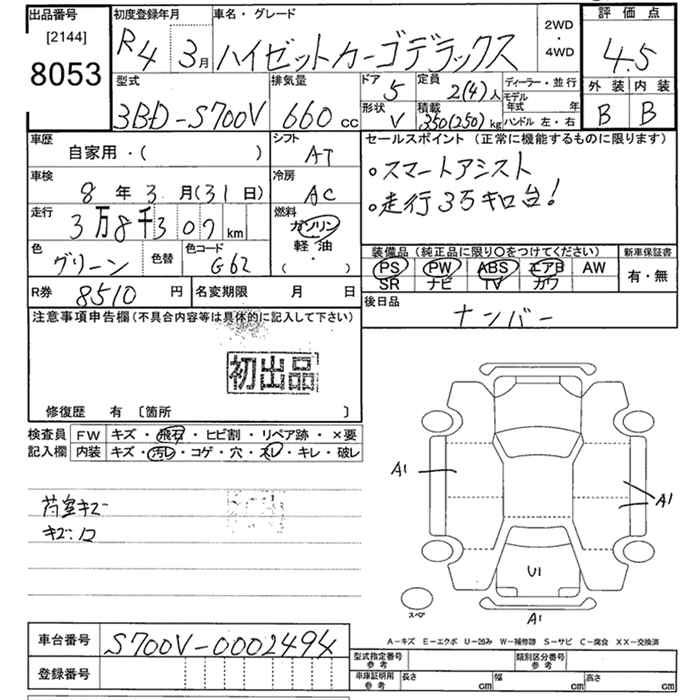 出品番号
[2144]
8053
初度登録年月
R4 3月
車名・グレード
ハイゼットカーゴデラックス
2WD
・
4WD
評価点
4.5
外装 内装
B B
型式
3BD-S700V
排気量
660 cc
ドア 5
定員 2(4)人
形状 V
積載 350(250)kg
ディーラー・並行
モデル年式 年
ハンドル 左・右
車歴
自家用・( )
シフト AT
車検
8年3月(31日)
冷房 AC
走行
3万8千307km
燃料
ガソリン
軽油
( ・ )
色 グリーン
色替
色コード G62
R券 8510円
名変期限 月 日
セールスポイント(正常に機能するものに限ります)
。スマートアシスト
。走行3万キロ台!
装備品(純正品に限り○をつけてください)
新車保証書
PS PW ABS エアB AW
SR ナビ TV カワ
有・無
後日品
ナンバー
注意事項申告欄(不具合内容等は具体的に記入して下さい)
初出品
修復歴 有 〔箇所 〕
検査員 FW キズ・飛石・ヒビ割・リペア跡・×要
記入欄 内装 キズ・汚レ・コゲ・穴・スレ・キレ・破レ
荷室キズ
キズ・ワ
A1
A1
U1
スペア
A1
A-キズ E-エクボ U-凹み W-補修跡 S-サビ C-腐食 XX-交換済
車台番号 S700V-0002494
登録番号
型式指定番号 参考
類別区分番号 参考
車庫証明用 参考
長さ cm 幅 cm 高さ cm